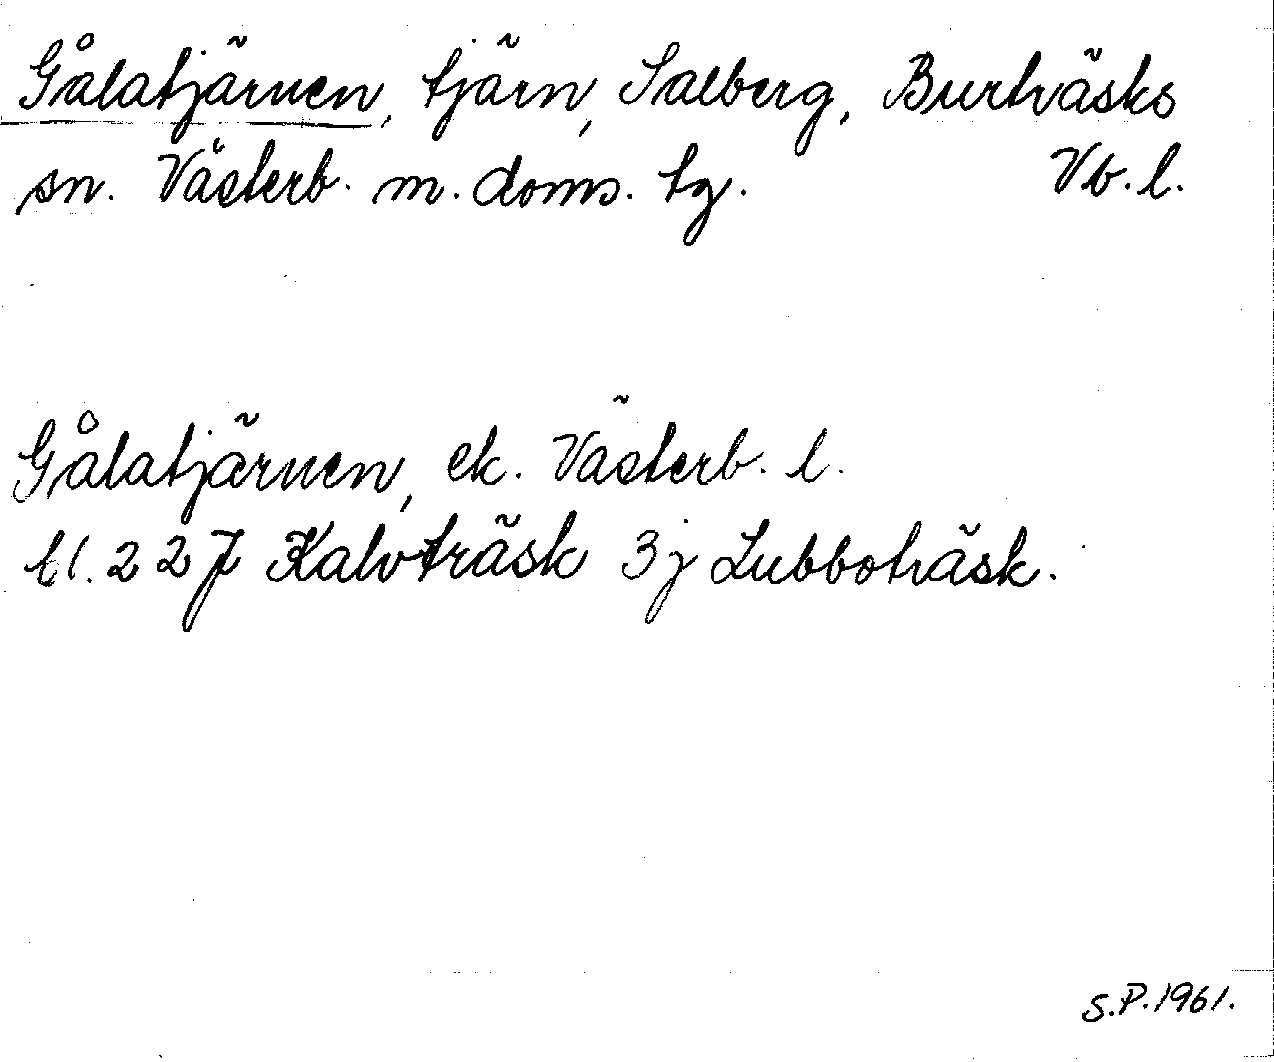 Gålatjärnen, tjärn, Salberg, Burträsks
sn. Västerb. m. doms. tg. Vb. l.
Gålatjärnen, ek. Västerb. l.
bl. 227 Kalvträsk 3j Lubboträsk.
S.P. 1961.